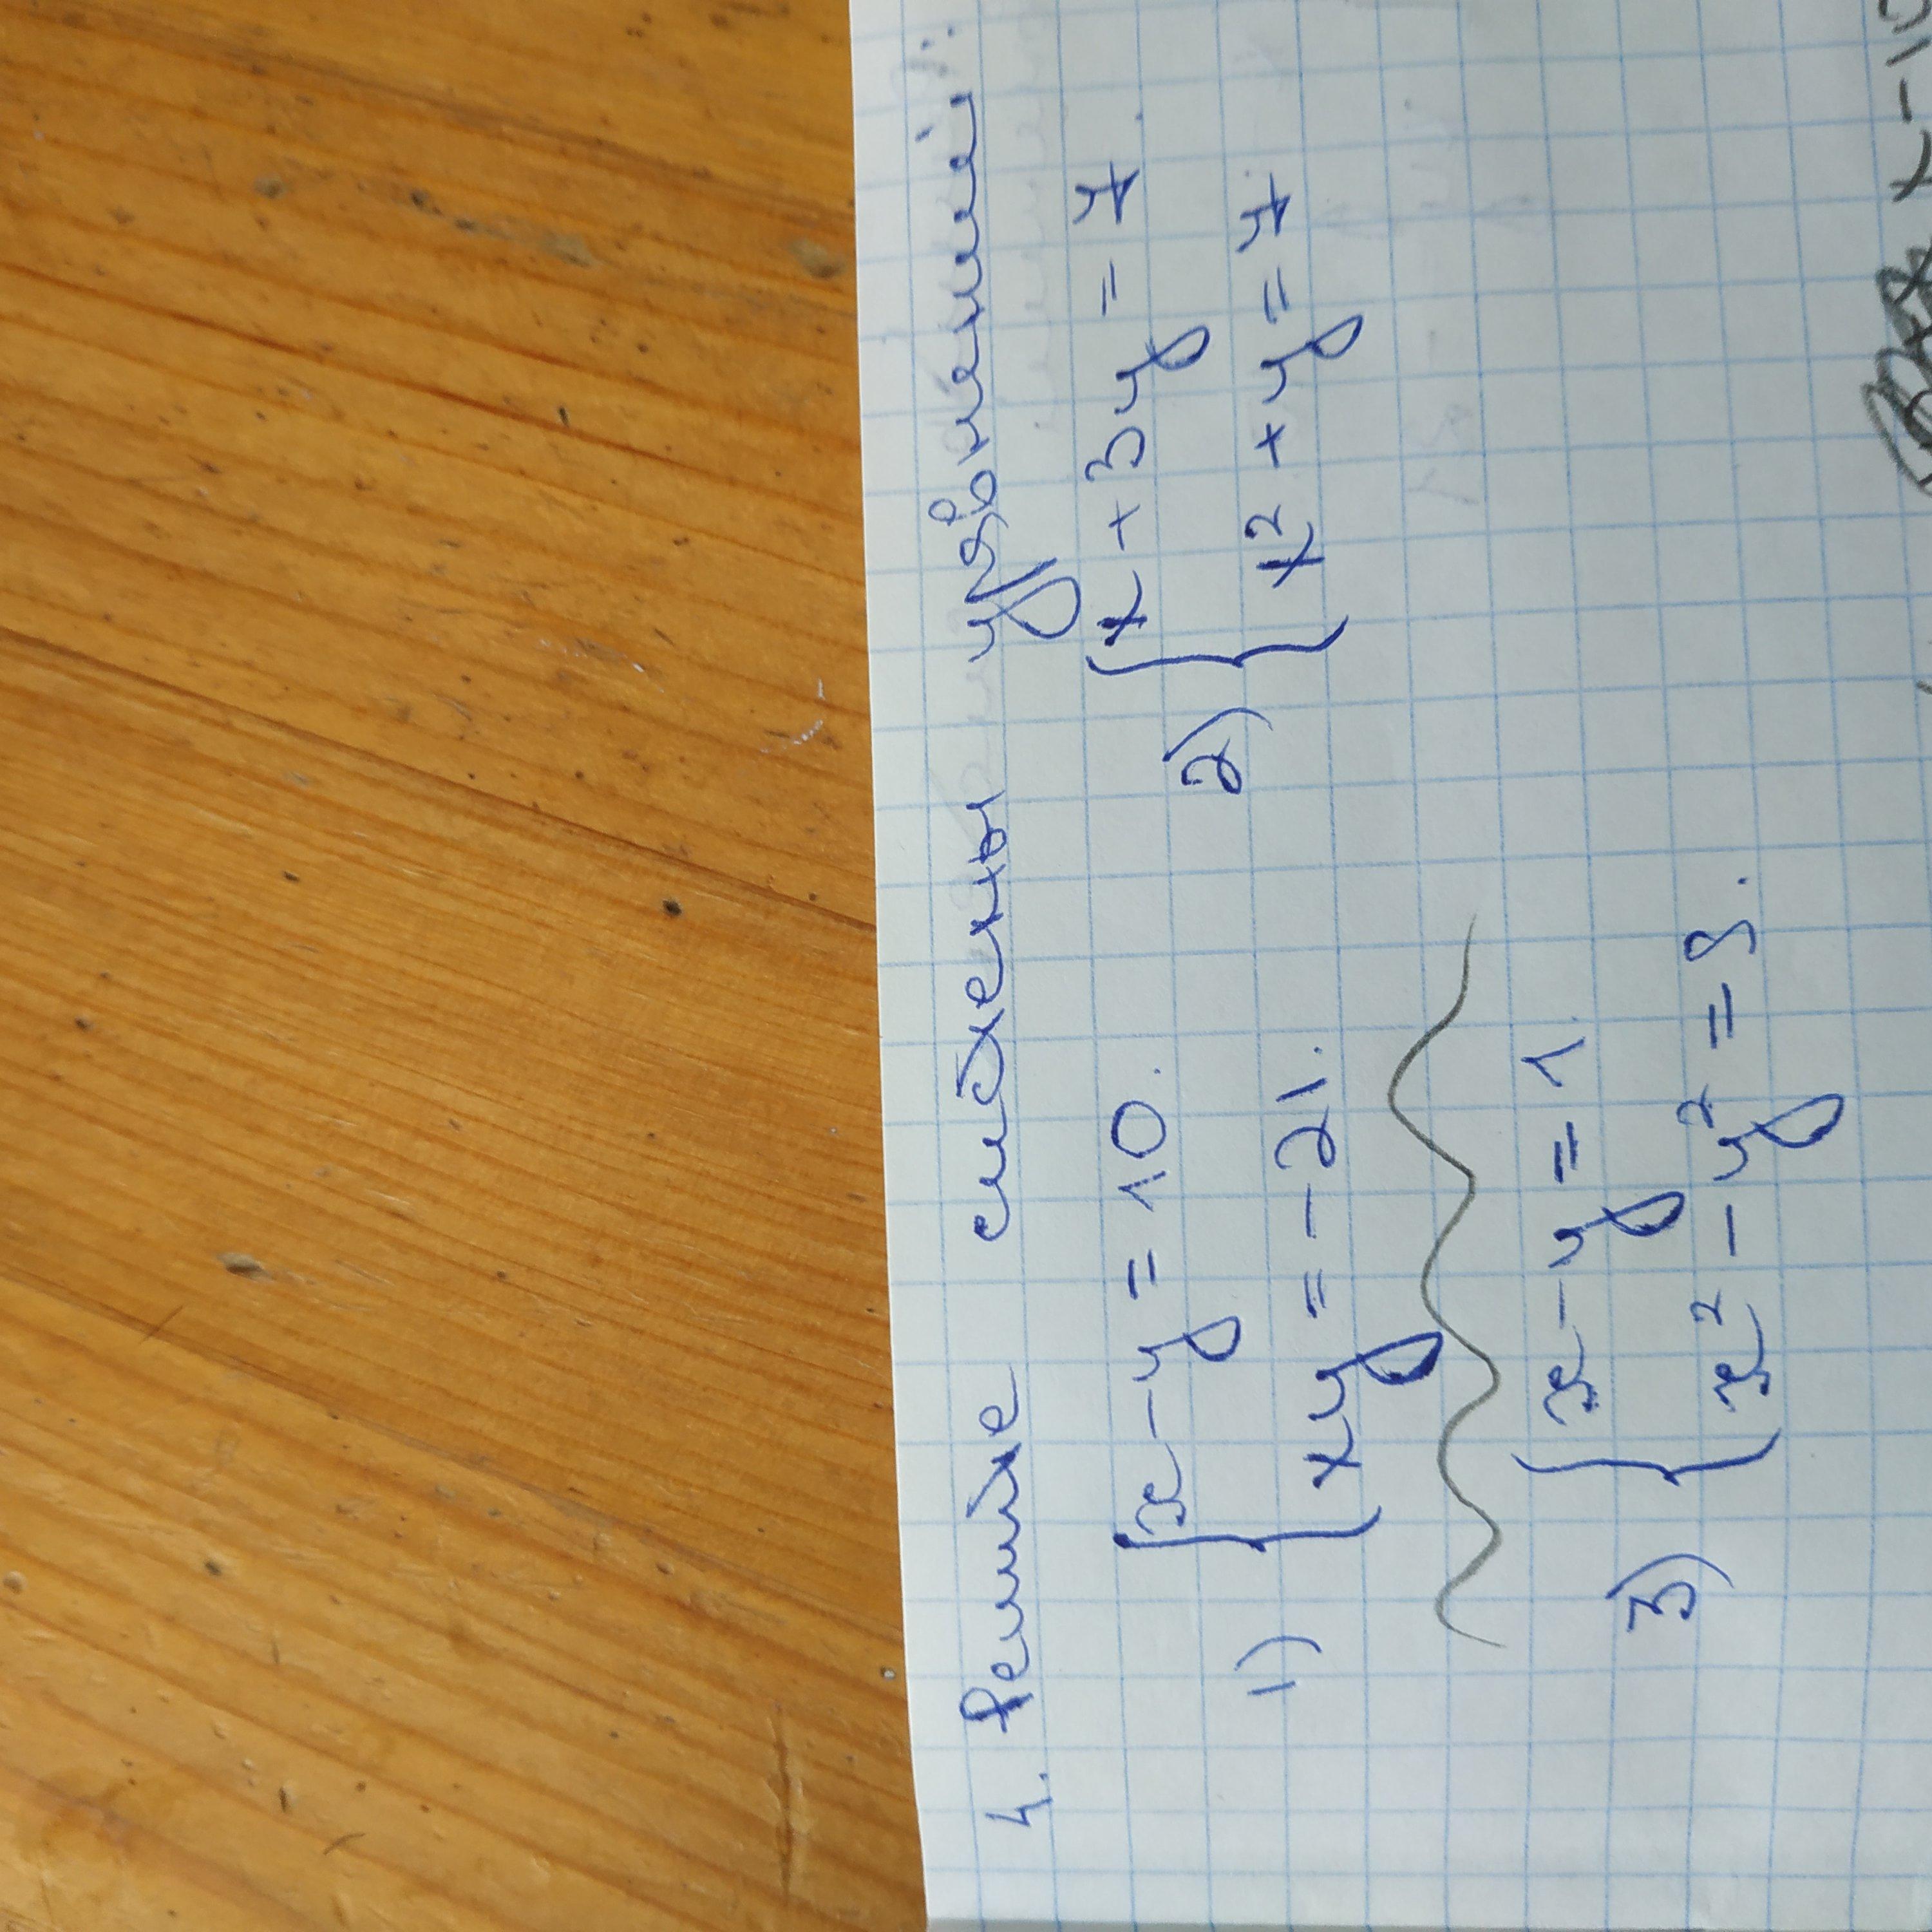 4. Решите системы уравнений:
1) { x - y = 10.
xy = -21.
2) { x + 3y = 7.
x² + y = 7.
3) { x - y = 1.
x² - y² = 9.
x - 10